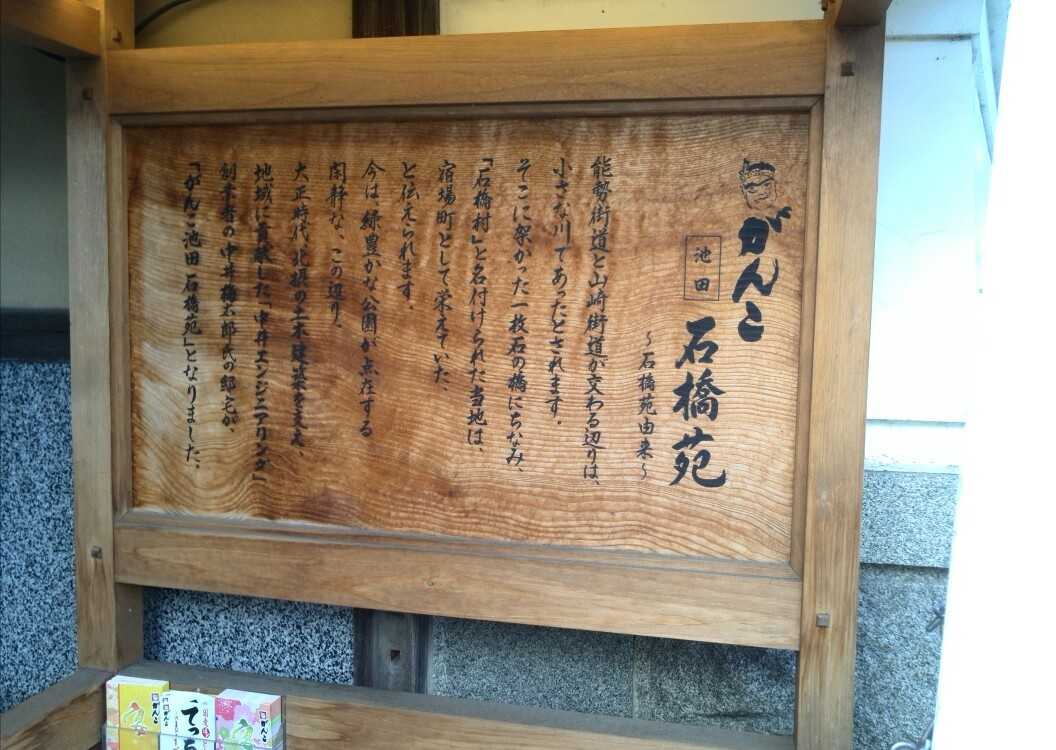 がんこ
池田
石橋苑
～石橋苑由来～
能勢街道と山崎街道が交わる辺りは、
小さな川であったとされます。
そこに架かった一枚石の橋にちなみ、
「石橋村」と名付けられた当地は、
宿場町として栄えていた、
と伝えられます。
今は、緑豊かな公園が点在する
閑静な、この辺り、
大正時代、北摂の土木建築を支え、
地域に貢献した、「中井エンジニアリング」
創業者の中井梅太郎氏の邸宅が、
「がんこ池田 石橋苑」となりました。
がんこ
がんこ
てっち
がんこ